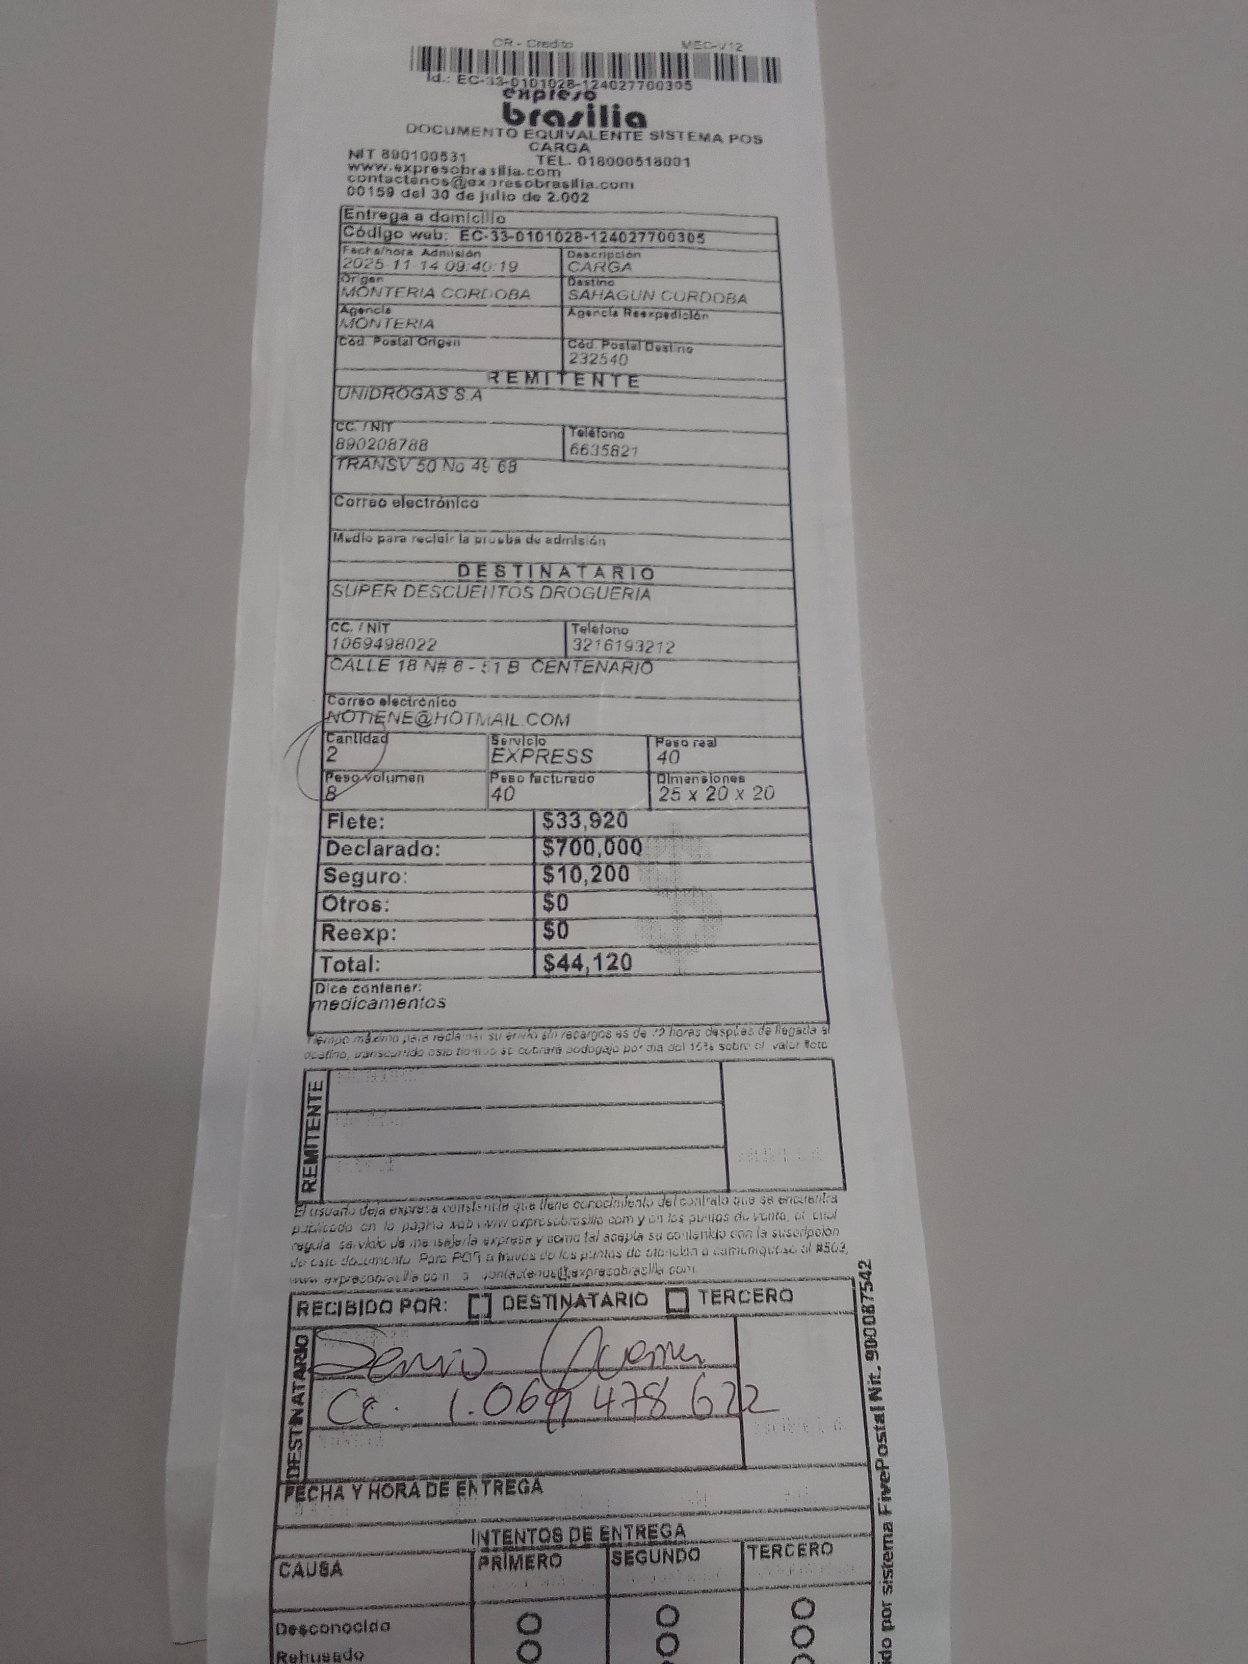 CR - Credito MEC-V12
Id.: EC-33-0101028-124027700305
expreso
brasilia
DOCUMENTO EQUIVALENTE SISTEMA POS
CARGA
NIT 890100531 TEL. 018000518001
www.expresobrasilia.com
contactenos@expresobrasilia.com
00159 del 30 de julio de 2.002
Entrega a domicilio
Código web: EC-33-0101028-124027700305
Fecha/hora Admisión Descripción
2025-11-14 09:40:19 CARGA
Origen Destino
MONTERIA CORDOBA SAHAGUN CORDOBA
Agencia Agencia Reexpedición
MONTERIA
Cód. Postal Origen Cód. Postal Destino
232540
REMITENTE
UNIDROGAS S.A
CC. / NIT Teléfono
890208788 6635821
TRANSV 50 No
Correo electrónico
Medio para recibir la prueba de admisión
DESTINATARIO
SUPER DESCUENTOS DROGUERIA
CC. / NIT Teléfono
1069498022 3216193212
CALLE 18 N# 6 - 51 B CENTENARIO
Correo electrónico
NOTIENE@HOTMAIL.COM
Cantidad Servicio Peso real
2 EXPRESS 40
Peso volumen Peso facturado Dimensiones
8 40 25 x 20 x 20
Flete: $33,920
Declarado: $700,000
Seguro: $10,200
Otros: $0
Reexp: $0
Total: $44,120
Dice contener:
medicamentos
Tiempo máximo para reclamar su envío sin recargos es de 72 horas después de llegada al
destino, transcurrido este tiempo se cobrara bodegaje por día del 15% sobre el valor flete
REMITENTE
El usuario deja expresa constancia que tiene conocimiento del contrato que se encuentra
publicado en la página web www.expresobrasilia.com y en los puntos de venta, el cual
regula servicio de mensajería expresa y como tal acepta su contenido con la suscripción
de este documento. Para PQR a través de los puntos de atención o comuníquese al #502,
www.expresobrasilia.com o contactenos@expresobrasilia.com
RECIBIDO POR: DESTINATARIO TERCERO
DESTINATARIO
CC. 1.069 478 622
FECHA Y HORA DE ENTREGA
INTENTOS DE ENTREGA
CAUSA PRIMERO SEGUNDO TERCERO
Desconocido
Rehusado
ido por sistema FivePostal Nit. 900087542